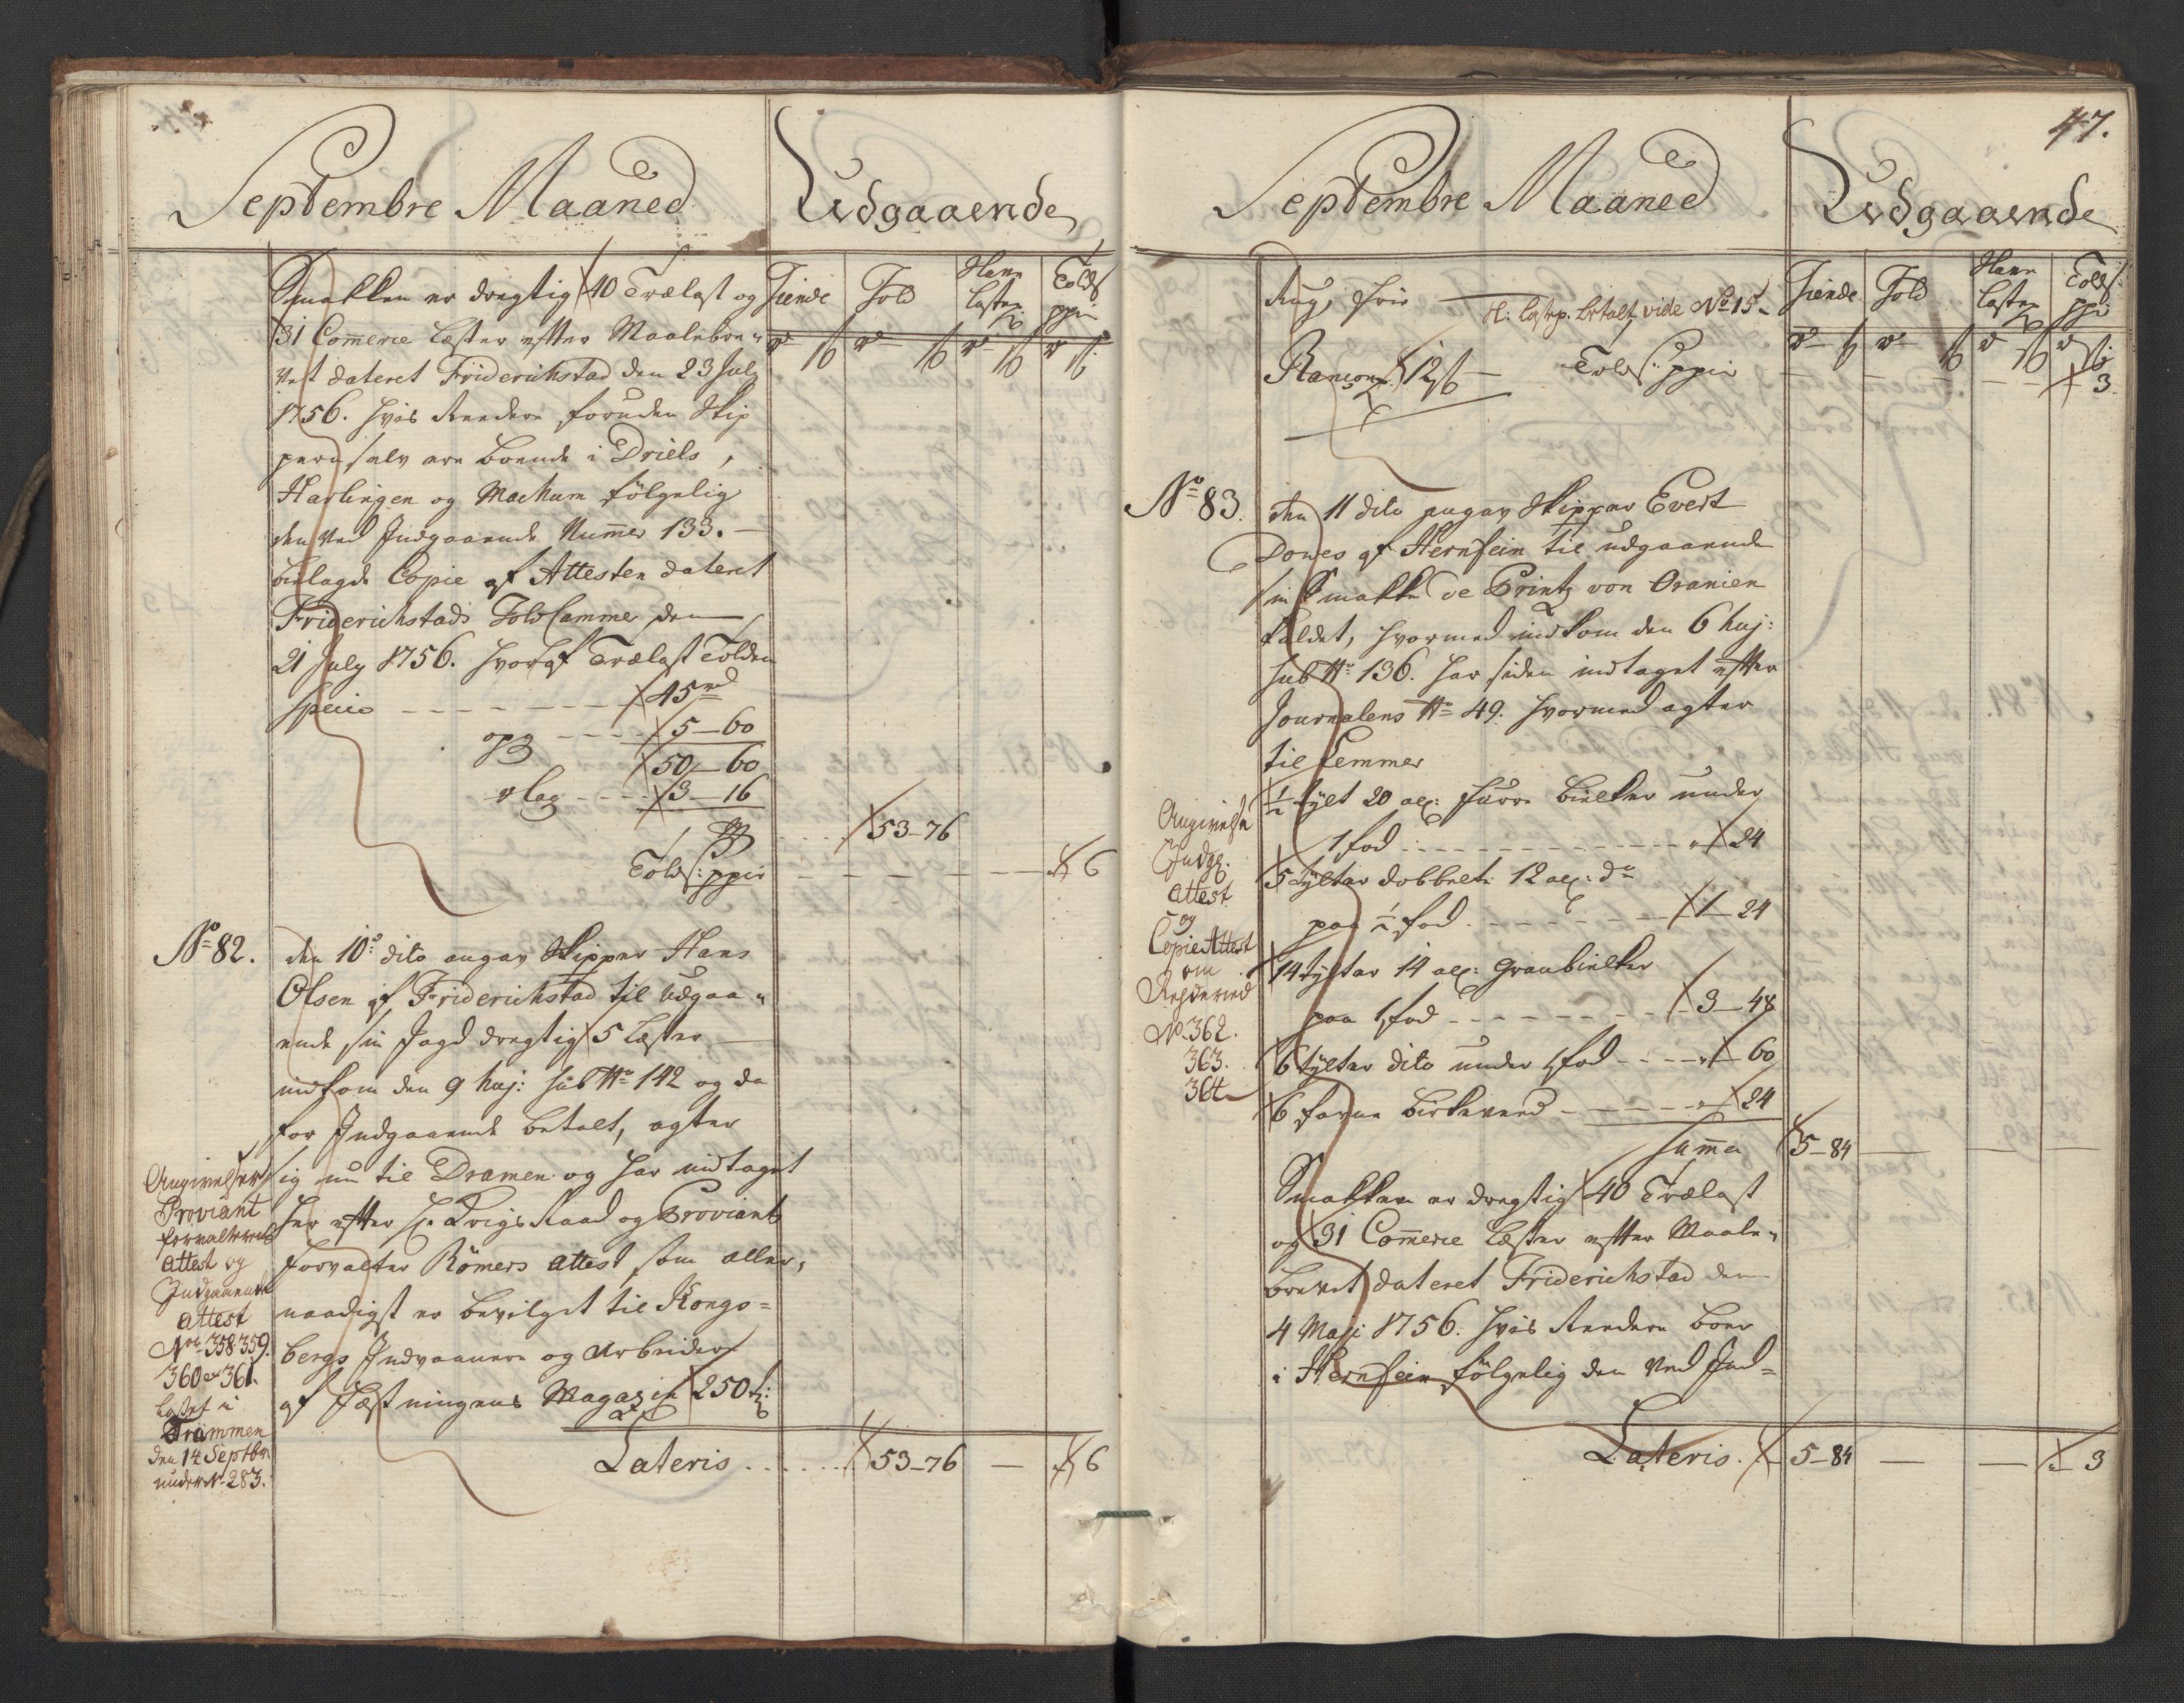 Septembre Maaned Udgaaende
Smakken er drægtig 40 Trælast og
Tiende Told Havn Lastep. Toldf: ppir
31 Com̄erce Læster efter Maalebre„
vet dateret Friderichstad den 23 July
1756. hvis Reedere foruden Skip
peren selv ere boende i Driels,
Harlingen og Mackum følgelig
den ved Indgaaende Num̄er 133.
bielagde Copie af Attesten dateret
Friderichstads Told Cammer den
21 July 1756. hvoraf Trælast Tolden
Specie 45 rd
opg 5-60
50-60
3-16
53-76
Toldf: ppir 6
No 82. den 10de dito angav Skipper Hans
Olsen af Friderichstad til udgaa„
ende sin Jagd drægtig 5 Læster
indkom den 9 huj: sub No 142 og da
for Indgaaende betalt, agter
sig nu til Dramen og har indtaget
her efter Hr. Krigs Raad og Proviant
Forvalter Römers Attest som aller„
naadigst er bevilget til Kongs=
bergs Indvaanere og Arbeidere
af Fæstningens Magazin 250 tr:
Angivelsen
Proviant
forvalterens
attest og
Indgaaende
attest
No 358.359.
360 et 361.
Losset i
Trammen
den 14 Septbr.
under No. 283.
Lateris 53-76 — 6
47.
Septembre Maaned Udgaaende
Rug, frie
H: Lastep. betalt vide No 15
Tiende Told Havn Lastep. Toldf: ppir
Rançons. 12 ß — Toldf: ppir 3
No 83. den 11 dito angav Skipper Evert
Dowes af Hernsein til udgaaende
sin Smakke de Printz von Oranien
kaldet, hvormed indkom den 6 huj:
sub No 136. har siden indtaget efter
Journalens No 49. hvormed agter
til Lemmer
½ tylt 20 al: furre bielker under
1 fod 24
5 tylter dobbelte 12 al: do
paa ½ fod 1-24
14 tylter 14 al: Granbielker
paa 1 fod 3-48
6 tylter dito under 1 fod 60
6 favne birkeved 24
Sum̄a 5-84
Angivelse
Indg.
attest
og
Copie Attest
om
Reederied
No. 362.
363.
364
Smakken er drægtig 40 Trælast
og 31 Com̄erce Læster efter Maale„
brevet dateret Friderichstad den
4 Maji 1756. hvis Reedere boer
i Hernsein følgelig den ved Ind=
Lateris. 5-84 — — 3